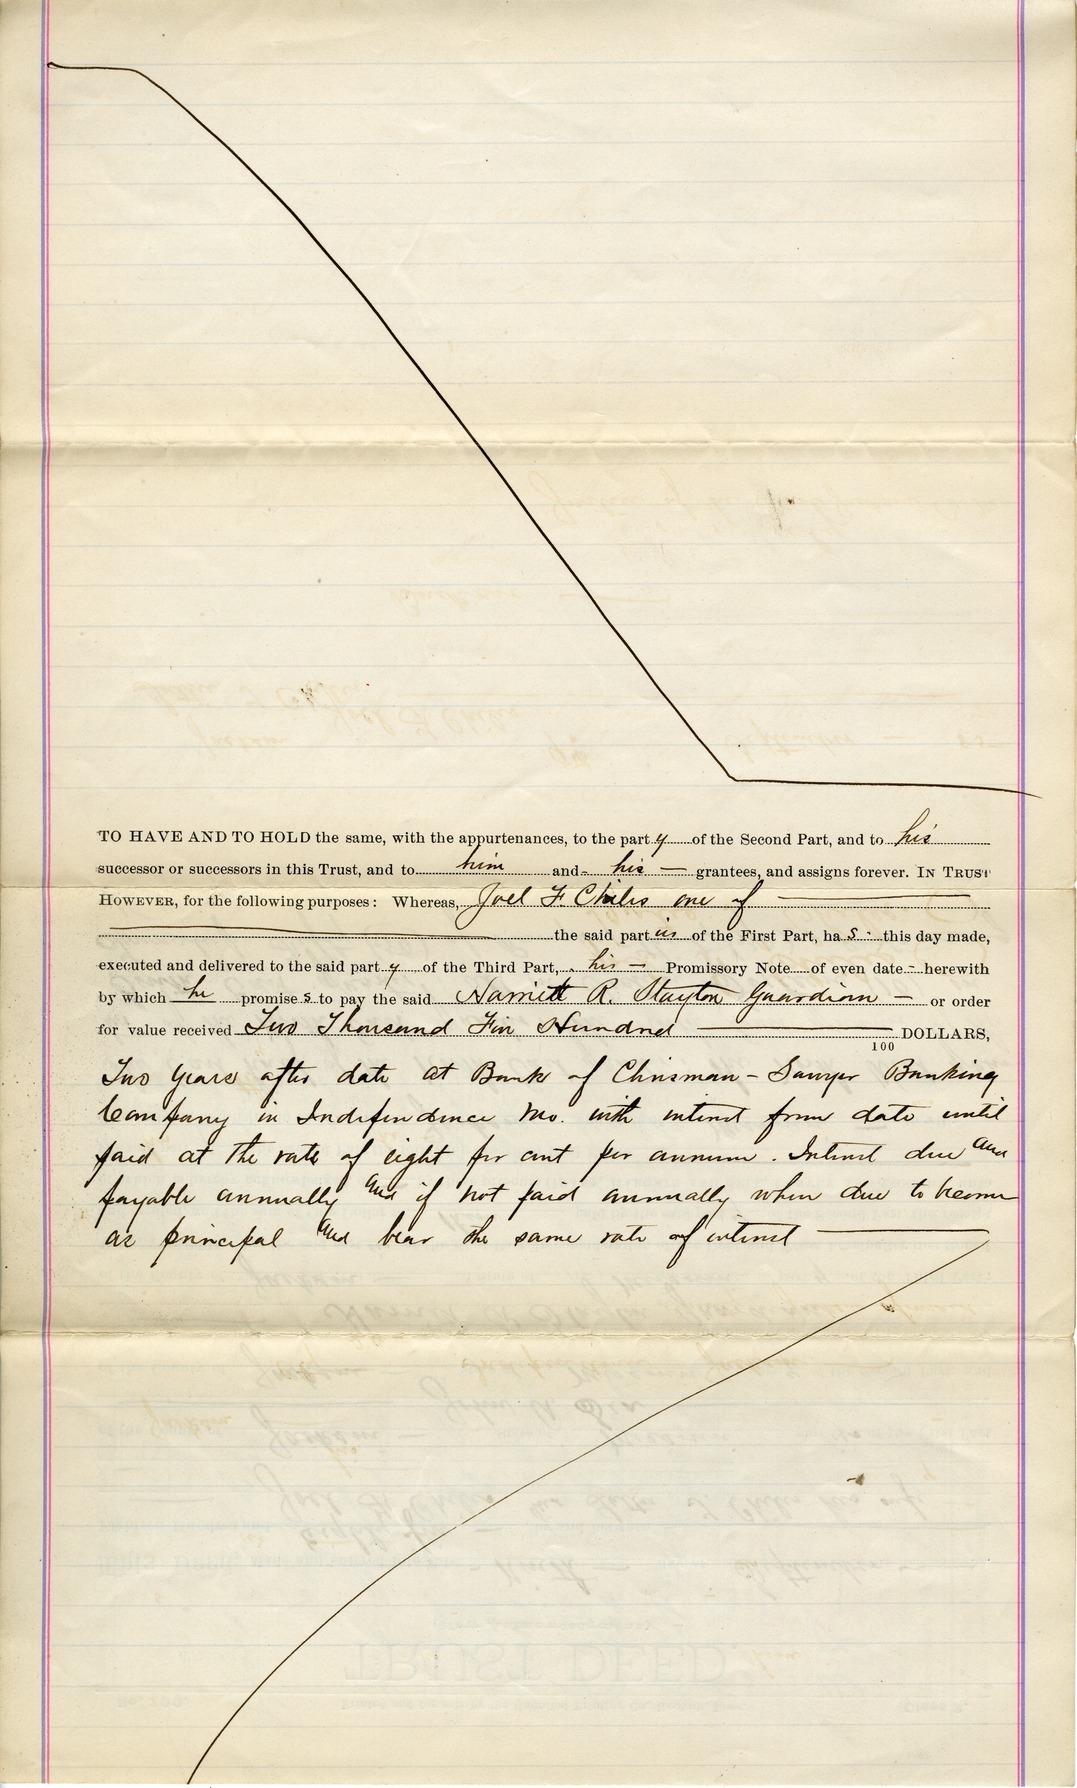 TO HAVE AND TO HOLD the same, with the appurtenances, to the part y of the Second Part, and to his
successor or successors in this Trust, and to him and his — grantees, and assigns forever. IN TRUST
HOWEVER, for the following purposes: Whereas, Joel F Chiles one of —
— the said part ies of the First Part, ha s this day made,
executed and delivered to the said part y of the Third Part, his — Promissory Note of even date - herewith
by which he promise s to pay the said Harriett R. Stayton Guardian — or order
for value received Two Thousand Five Hundred — DOLLARS,
100
Two Years after date at Bank of Chrisman - Sawyer Banking
Company in Independence Mo. with interest from date until
paid at the rate of eight per cent per annum. Interest due and
payable annually and if not paid annually when due to become
as principal and bear the same rate of interest —